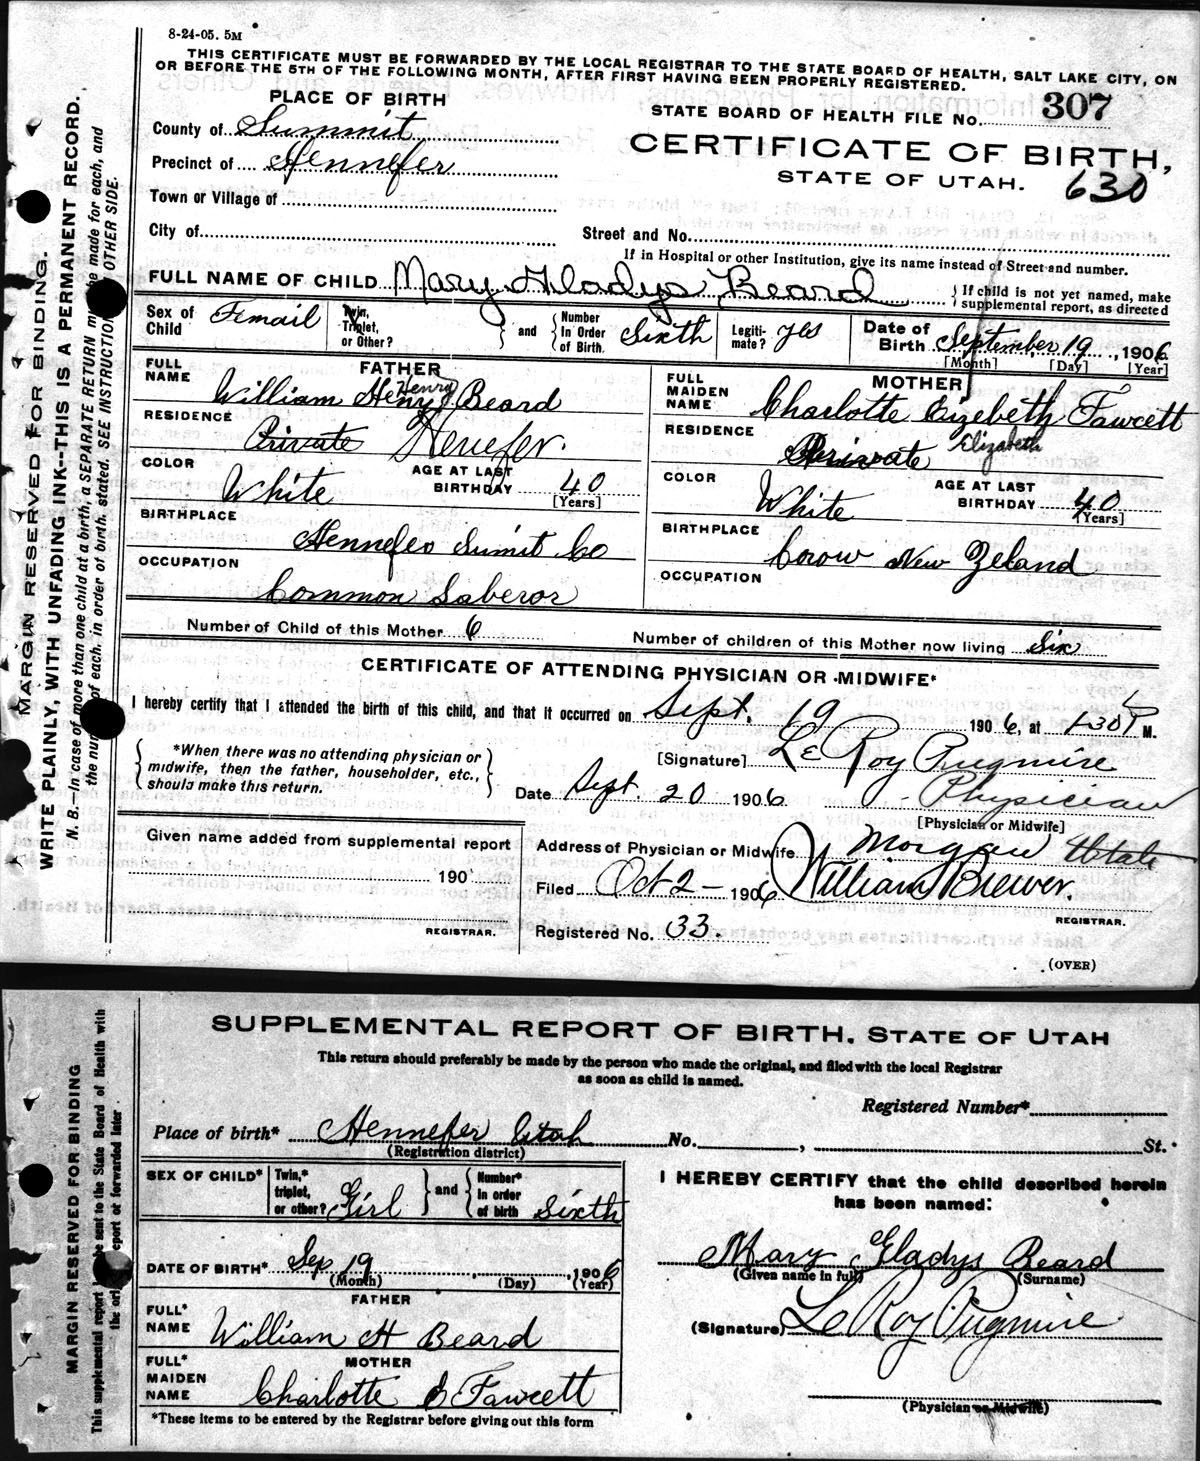 8-24-05. 5M
THIS CERTIFICATE MUST BE FORWARDED BY THE LOCAL REGISTRAR TO THE STATE BOARD OF HEALTH, SALT LAKE CITY, ON
OR BEFORE THE 5TH OF THE FOLLOWING MONTH, AFTER FIRST HAVING BEEN PROPERLY REGISTERED.
PLACE OF BIRTH
STATE BOARD OF HEALTH FILE No. 307
County of Summit
CERTIFICATE OF BIRTH,
Precinct of Hennefer
STATE OF UTAH. 630
Town or Village of
City of
Street and No.
If in Hospital or other Institution, give its name instead of Street and number.
FULL NAME OF CHILD Mary Gladys Beard
If child is not yet named, make supplemental report, as directed
Sex of Child Femail
Twin, Triplet, or Other?
and
Number In Order of Birth Sixth
Legiti-mate? yes
Date of Birth September 19, 1906
[Month] [Day] [Year]
FATHER
FULL NAME William Henry Henry Beard
RESIDENCE Private Henefer.
COLOR White
AGE AT LAST BIRTHDAY 40
[Years]
BIRTHPLACE Hennefer Sumit Co
OCCUPATION Common Laberor
MOTHER
FULL MAIDEN NAME Charlotte Elizebeth Fawcett
Elizabeth
RESIDENCE Private
COLOR White
AGE AT LAST BIRTHDAY 40
[Years]
BIRTHPLACE New Zeland
OCCUPATION
Number of Child of this Mother 6
Number of children of this Mother now living Six
CERTIFICATE OF ATTENDING PHYSICIAN OR MIDWIFE*
I hereby certify that I attended the birth of this child, and that it occurred on Sept. 19 1906, at 1:30 P M.
*When there was no attending physician or
midwife, then the father, householder, etc.,
should make this return.
[Signature] Le Roy Pugmire
Date Sept. 20 1906
Physician
[Physician or Midwife]
Given name added from supplemental report
190
REGISTRAR.
Address of Physician or Midwife Morgan Utah
Filed Oct 2- 1906 William Brewer.
REGISTRAR.
Registered No. 33.
(OVER)
MARGIN RESERVED FOR BINDING.
WRITE PLAINLY, WITH UNFADING INK--THIS IS A PERMANENT RECORD.
N. B.—In case of more than one child at a birth, a SEPARATE RETURN must be made for each, and
the number of each, in order of birth, stated. SEE INSTRUCTIONS OTHER SIDE.
SUPPLEMENTAL REPORT OF BIRTH. STATE OF UTAH
This return should preferably be made by the person who made the original, and filed with the local Registrar
as soon as child is named.
Registered Number*
Place of birth* Hennefer Utah No. , St.
(Registration district)
SEX OF CHILD*
Twin,* triplet, or other? Girl
and
Number* In order of birth Sixth
I HEREBY CERTIFY that the child described herein
has been named:
Mary Gladys Beard
(Given name in full) (Surname)
DATE OF BIRTH* Sep 19, 1906
(Month) (Day) (Year)
FATHER
FULL* NAME William H Beard
(Signature) Le Roy Pugmire
MOTHER
FULL* MAIDEN NAME Charlotte E Fawcett
(Physician or Midwife)
*These items to be entered by the Registrar before giving out this form
MARGIN RESERVED FOR BINDING
This supplemental report be sent to the State Board of Health with
the ori report or forwarded later